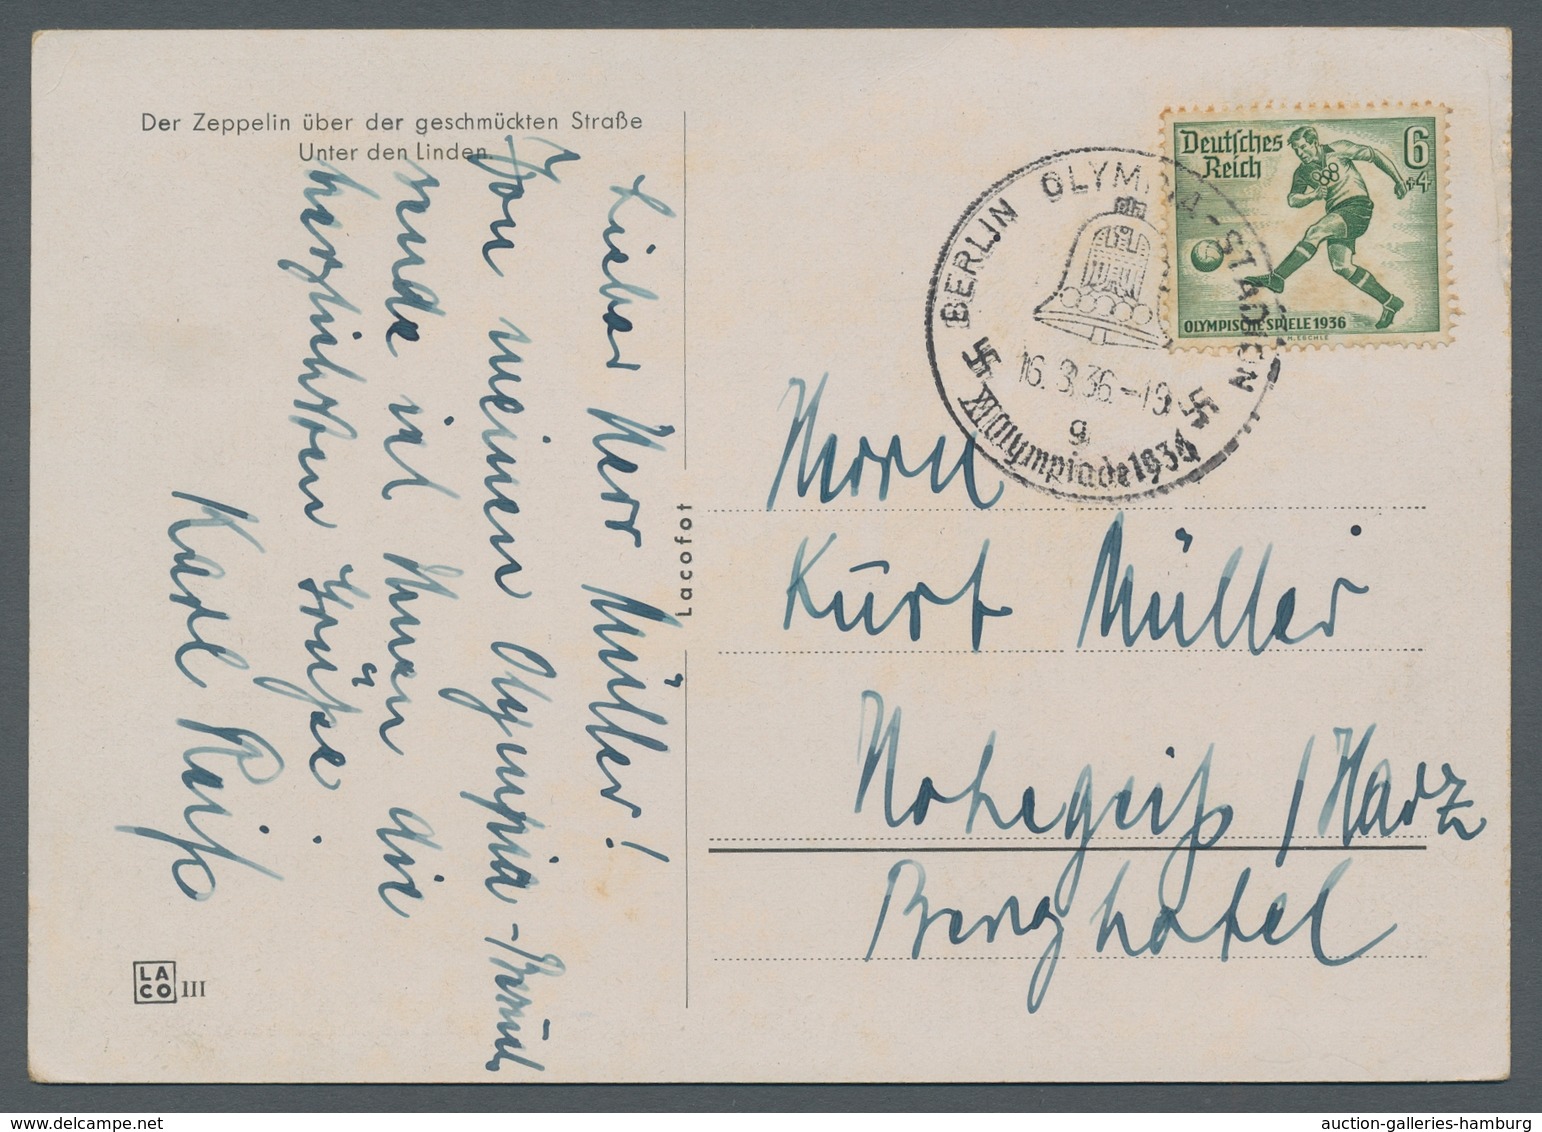 Der Zeppelin über der geschmückten Straße
Unter den Linden
Lieber Herr Müller!
Von meinem Olympia-Besuch
sende ich Ihnen die
herzlichsten Grüße.
Karl
LACO III
Lacofot
Deutsches
Reich
6
+4
OLYMPISCHE SPIELE 1936
M. ESCHLE
BERLIN OLYMPIA-STADION
16.8.36.-19
g
XI Olympiade 1936
Herrn
Kurt Müller
Hohegeiß / Harz
Berghotel
auction-galleries-hamburg.com